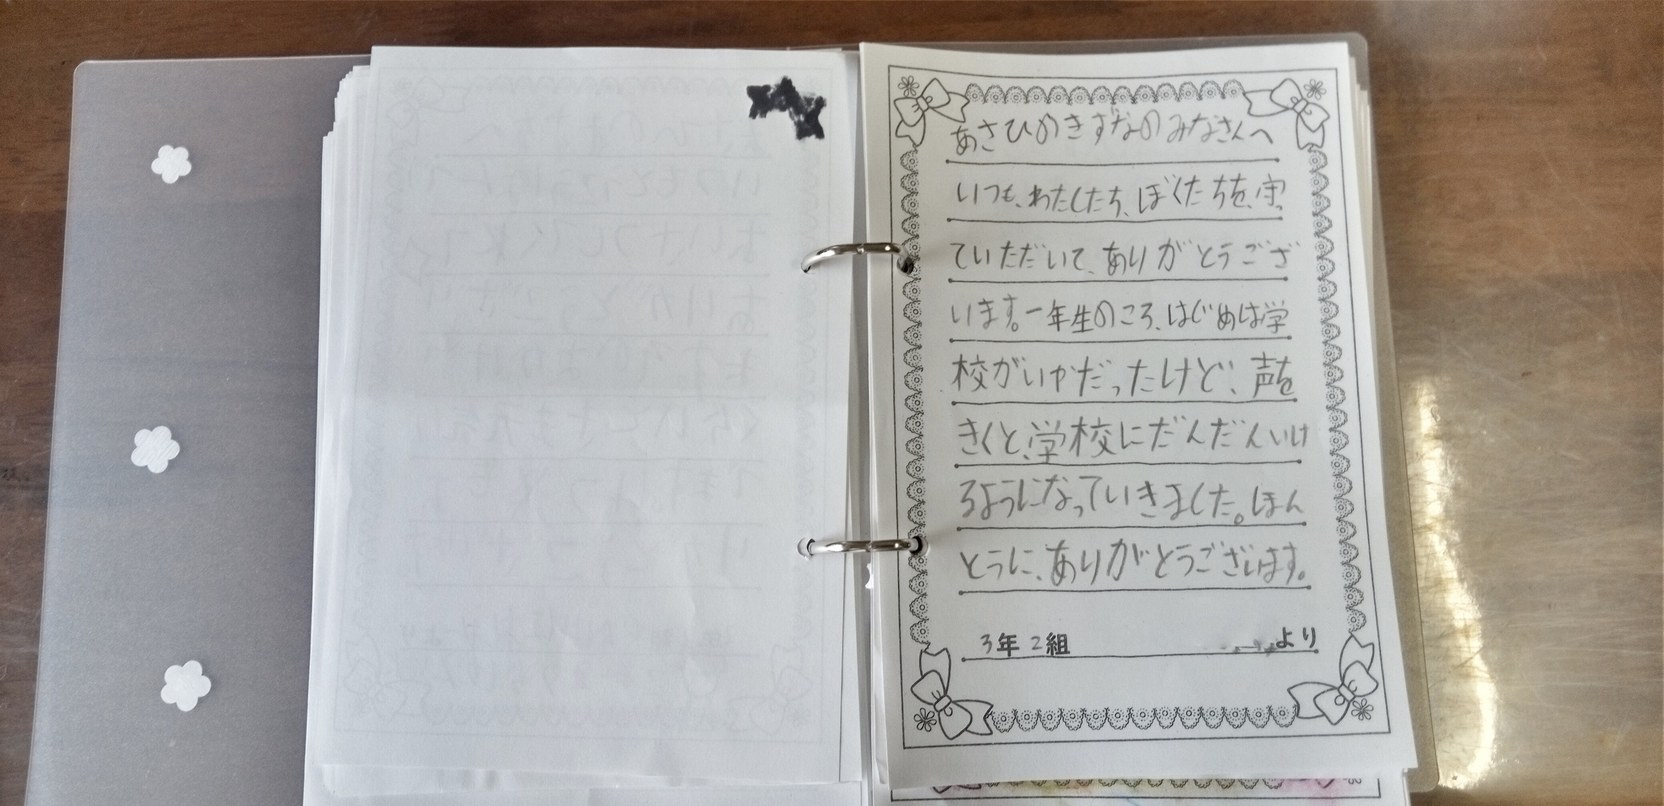 あさひのきずなのみなさんへ
いつも、わたしたち、ぼくたちを、守
ていただいて、ありがとうござ
います。一年生のころ、はじめは学
校がいやだったけど、声を
きくと、学校にだんだんいけ
るようになっていきました。ほん
とうに、ありがとうございます。
3年 2組 より